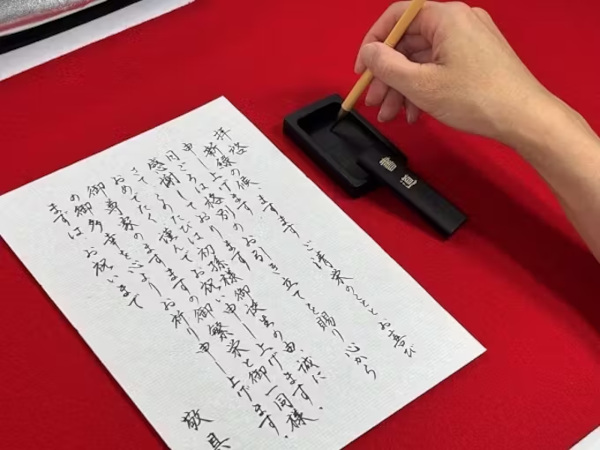 拝啓
新緑の候 ますます ご清栄のこととお喜び
申し上げます
日ごろは格別のお引き立てを賜り心から
感謝しております
さて このたびは初孫様 御誕生の由 誠に
おめでたく 謹んでお祝い申し上げます
御尊家のますますの御繁栄と御一同様
の御多幸を心よりお祈り申し上げます。
まずは お祝いまで
敬具
書道